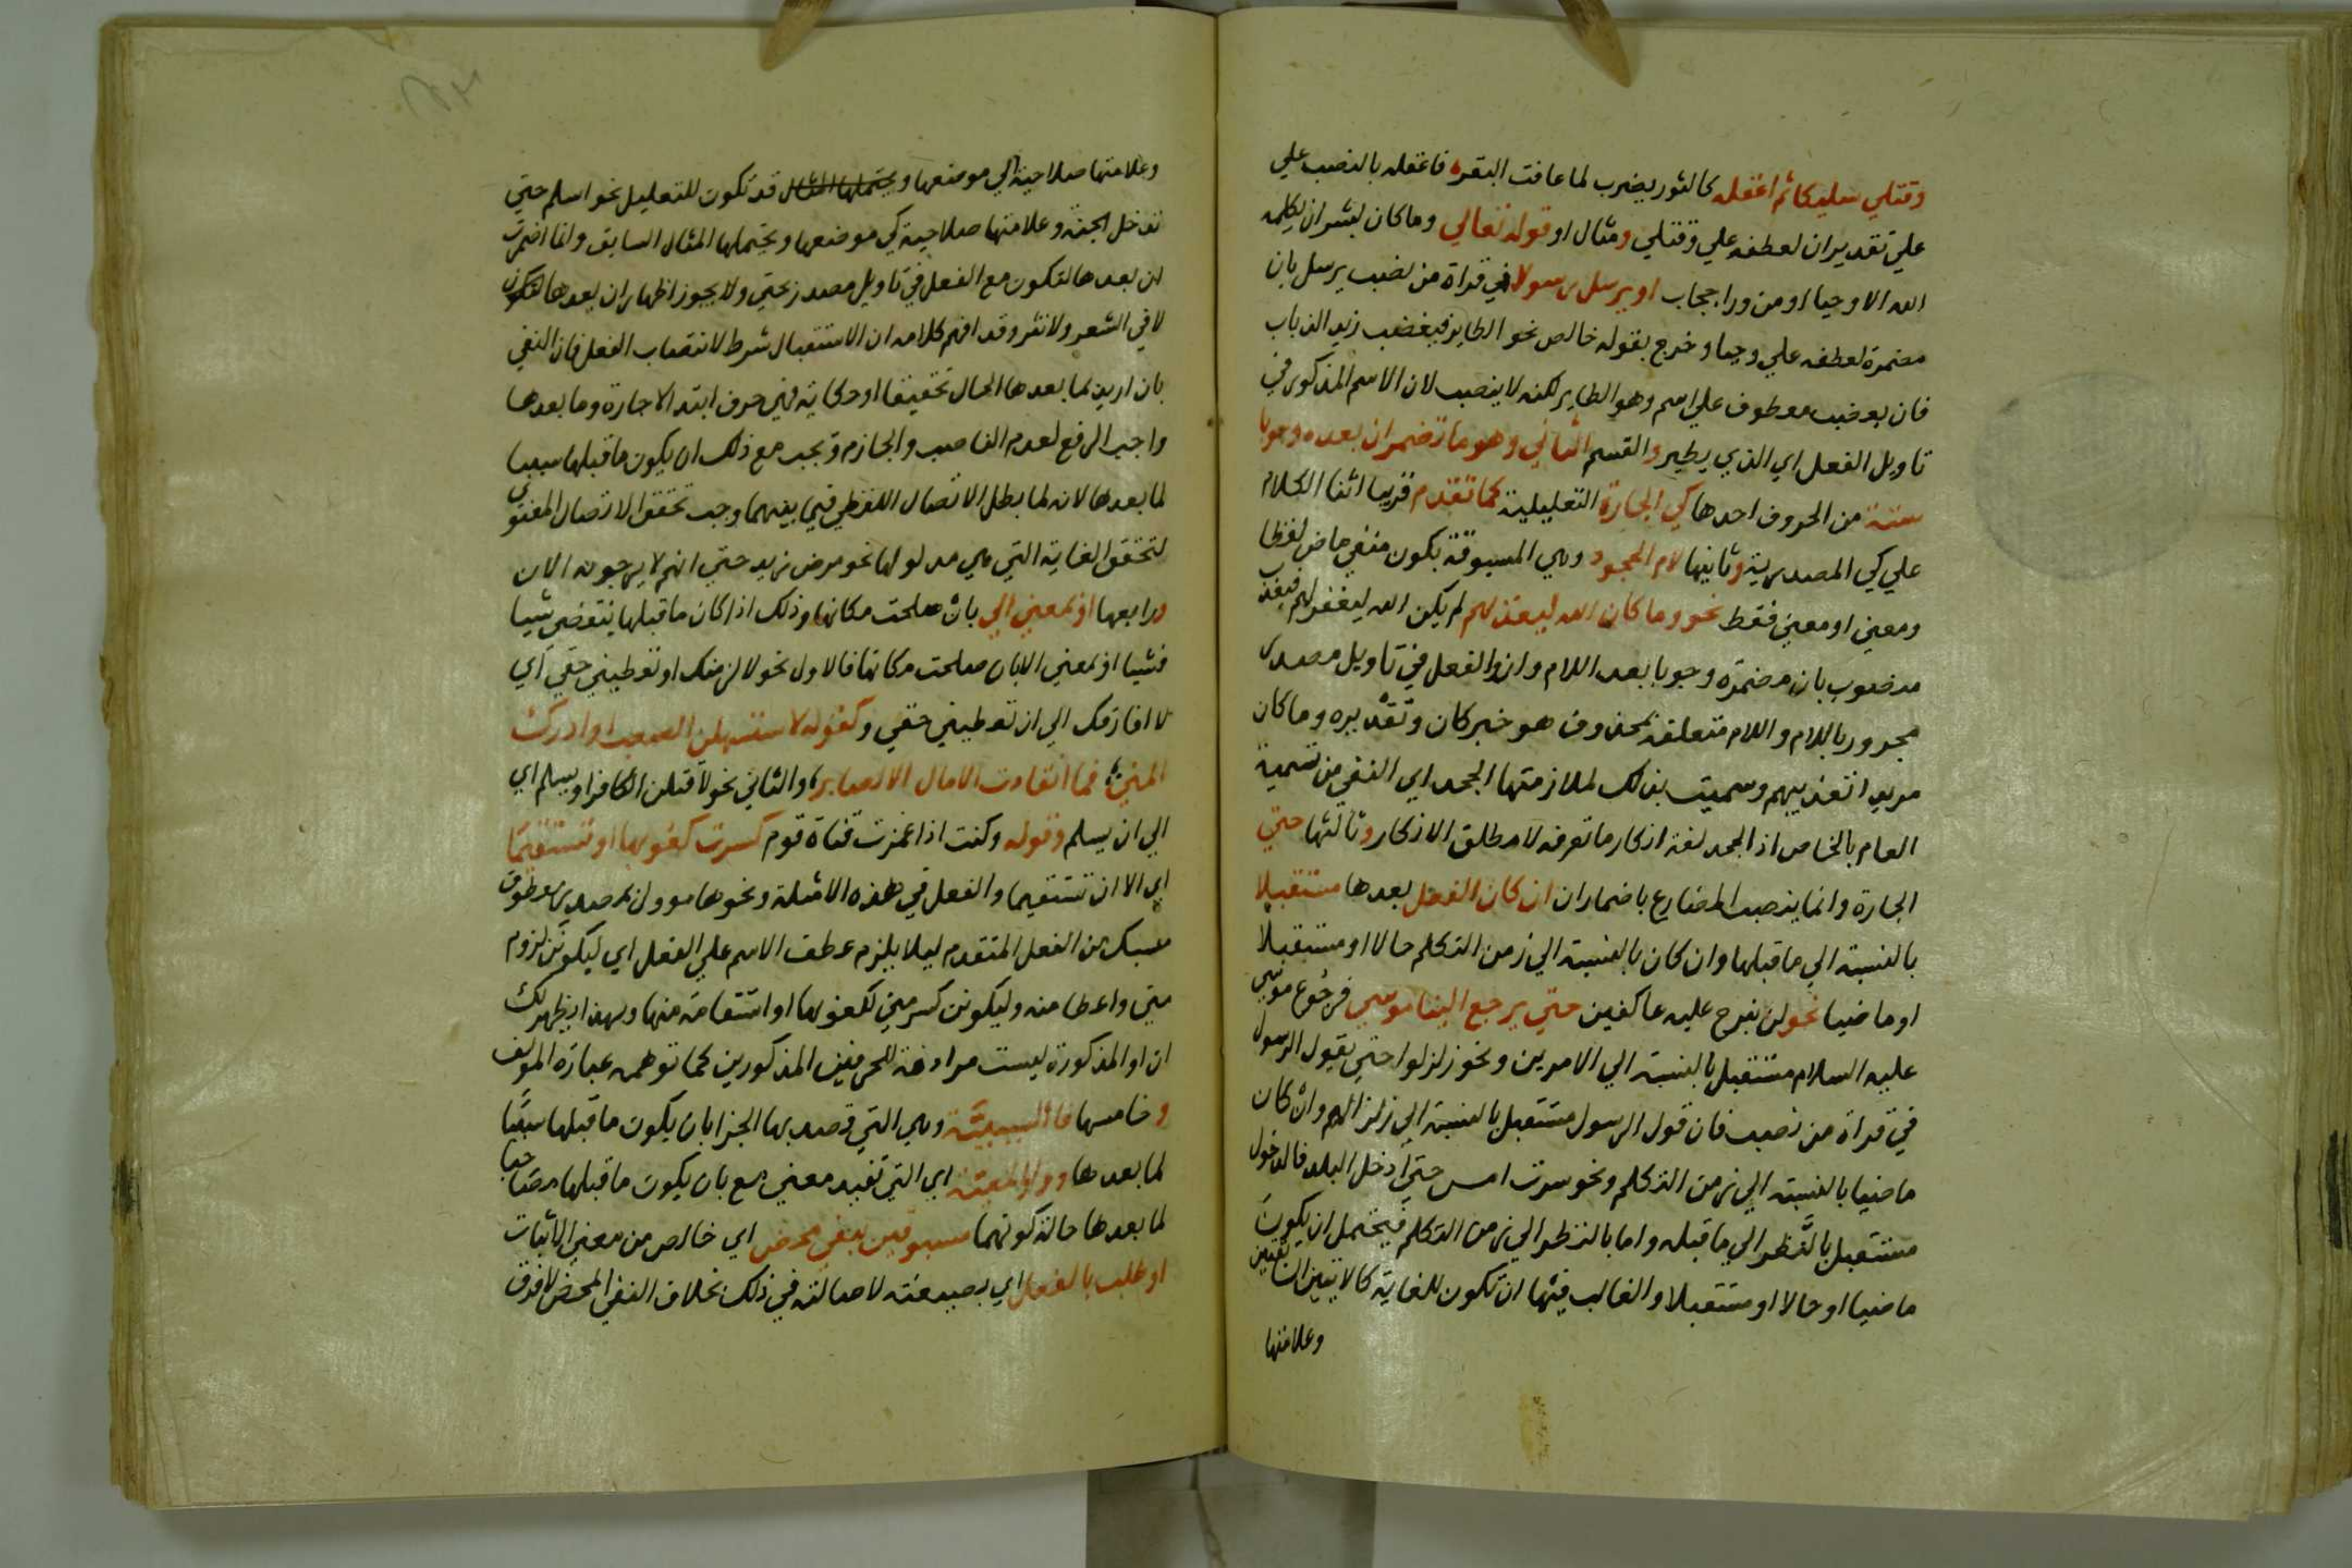 وقتلي سليكا ثم اعقله كالثور يضرب لما عافت البقره فاعقله بالنصب علي
علي تقدير ان لعطفه علي وقتلي ومثال او قوله تعالي وما كان لبشر ان يكلمه
الله الا وحيا او من ورا حجاب او يرسل رسولا في قراة من نصب يرسل بان
مضمرة لعطفه علي وحيا وخرج بقوله خالص نحو الطاير فيغضب زيد الذباب
فان يغضب معطوف علي اسم وهو الطاير لكنه لا ينصب لان الاسم المذكور في
تاويل الفعل اي الذي يطير والقسم الثاني وهو ما تضمر ان بعده وجوبا
ستة من الحروف احدها كي الجارة التعليلية كما تقدم قريبا اثنا الكلام
علي كي المصدرية وثانيها لام الجحود وهي المسبوقة بكون منفي ماض لفظا
ومعني او معني فقط نحو وما كان الله ليعذبهم لم يكن الله ليغفر لهم فيعذب
منصوب بان مضمرة وجوبا بعد اللام وان والفعل في تاويل مصدر
مجرور باللام واللام متعلقة بمحذوف هو خبر كان وتقديره وما كان
مريدا تعذيبهم وسميت بذلك لملازمتها الجحد اي النفي من تسمية
العام بالخاص اذ الجحد لغة انكار ما تعرفه لا مطلق الانكار وثالثها حتي
الجارة وانما ينصب المضارع باضمار ان ان كان الفعل بعدها مستقبلا
بالنسبة الي ما قبلها وان كان بالنسبة الي زمن التكلم حالا او مستقبلا
او ماضيا نحو لن نبرح عليه عاكفين حتي يرجع الينا موسي فرجوع موسي
عليه السلام مستقبل بالنسبة الي الامرين ونحو زلزلوا حتي يقول الرسول
في قراة من نصب فان قول الرسول مستقبل بالنسبة الي زلزالهم وان كان
ماضيا بالنسبة الي زمن التكلم ونحو سرت امس حتي ادخل البلد فالدخول
مستقبل بالنظر الي ما قبله واما بالنظر الي زمن التكلم فيحتمل ان يكون
ماضيا او حالا او مستقبلا والغالب فيها ان تكون للغاية كالايتين السابقتين
وعلامتها
وعلامتها صلاحية الي موضعها ويحتملها المثال قد تكون للتعليل نحو اسلم حتي
تدخل الجنة وعلامتها صلاحية كي موضعها ويحتملها المثال السابق وانما اضمرت
ان بعدها لتكون مع الفعل في تاويل مصدر بحتي ولا يجوز اظهار ان بعدها
لا في الشعر ولا نثر وقد افهم كلامه ان الاستقبال شرط لانتصاب الفعل فان النفي
بان اريد لما بعدها الحال تحقيقا او حكاية فهي حرف ابتدا لا جارة وما بعدها
واجب الرفع لعدم الناصب والجازم ويجب مع ذلك ان يكون ما قبلها سببا
لما بعدها لانه لما بطل الاتصال اللفظي فيما بينهما وجب تحقق الاتصال المعنوي
لتحقق الغاية التي هي مدلولها نحو مرض زيد حتي انهم لا يرجونه الان
ورابعها او بمعني الي بان صلحت مكانها وذلك اذا كان ما قبلها ينقضي شيا
فشيا او بمعني الا بان صلحت مكانها فالاول نحو لالزمنك او تعطيني حقي اي
لا افارقك الي ان تعطيني حقي وكقوله لاستسهلن الصعب او ادرك
المني؛ فما انقادت الامال الا لصابر؛ والثاني نحو لاقتلن الكافر او يسلم اي
الي ان يسلم وقوله وكنت اذا غمزت قناة قوم كسرت كعوبها او تستقيما
اي الا ان تستقيما والفعل في هذه الامثلة ونحوها موول بمصدر معطوف
مسبك من الفعل المتقدم ليلا يلزم عطف الاسم علي الفعل اي ليكونن لزوم
مني واعطا منه وليكونن كسر مني لكعوبها او استقامة منها وبهذا يظهر لك
ان او المذكورة ليست مرادفة للحرفين المذكورين كما توهمه عبارة المولف
وخامسها فا السببية وهي التي قصد بها الجزا بان يكون ما قبلها سببا
لما بعدها وواو المعية اي التي تفيد معني مع بان يكون ما قبلها مصاحبا
لما بعدها حالة كونهما مسبوقين بنفي محض اي خالص من معني الاثبات
او طلب بالفعل اي بصيغته لاصالته في ذلك بخلاف النفي المحض لا فرق